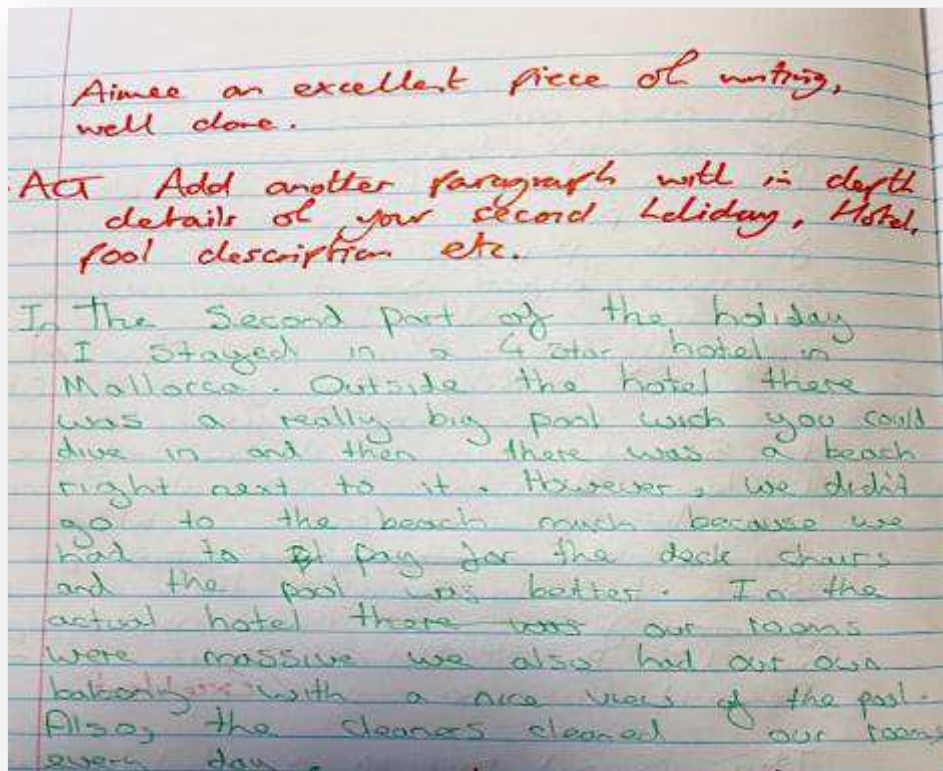 Aimee an excellent piece of writing,
well done.
ACT Add another paragraph with in depth
details of your second holiday, Hotel,
pool description etc.
In The Second Part of the holiday
I stayed in a 4 star hotel in
Mallorca. Outside the hotel there
was a really big pool wich you could
dive in and then there was a beach
right next to it. However, we didn't
go to the beach much because we
had to pay for the deck chairs
and the pool was better. In the
actual hotel there was our rooms
were massive we also had our own
with a nice view of the pool.
Also, the cleaners cleaned our rooms
every day.